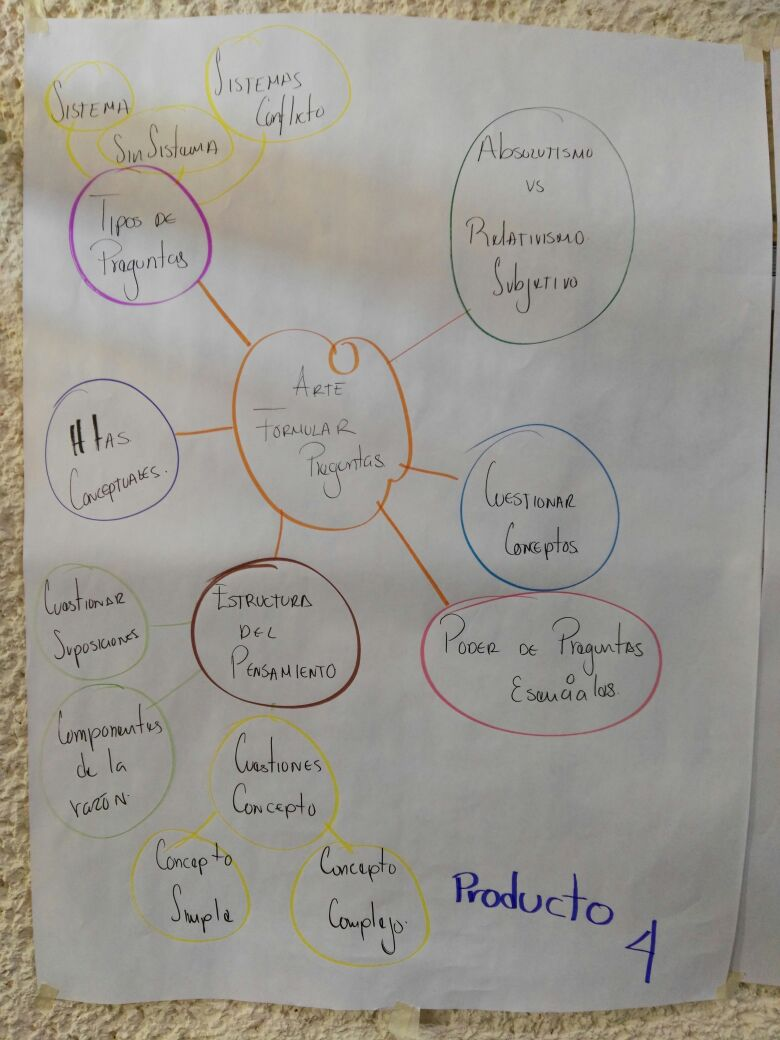 SISTEMA
SISTEMAS
Conflicto
Sin Sistema
Tipos de
Preguntas
ABSOLUTISMO
VS
RELATIVISMO
Subjetivo
ARTE
FORMULAR
Preguntas
HTAS
CONCEPTUALES.
CUESTIONAR
CONCEPTOS
Cuestionar
Suposiciones
ESTRUCTURA
DEL
PENSAMIENTO
PODER DE Preguntas
Esenciales.
Componentes
de la
razón.
CUESTIONES
CONCEPTO
Concepto
Simple
Concepto
Complejo.
Producto
4